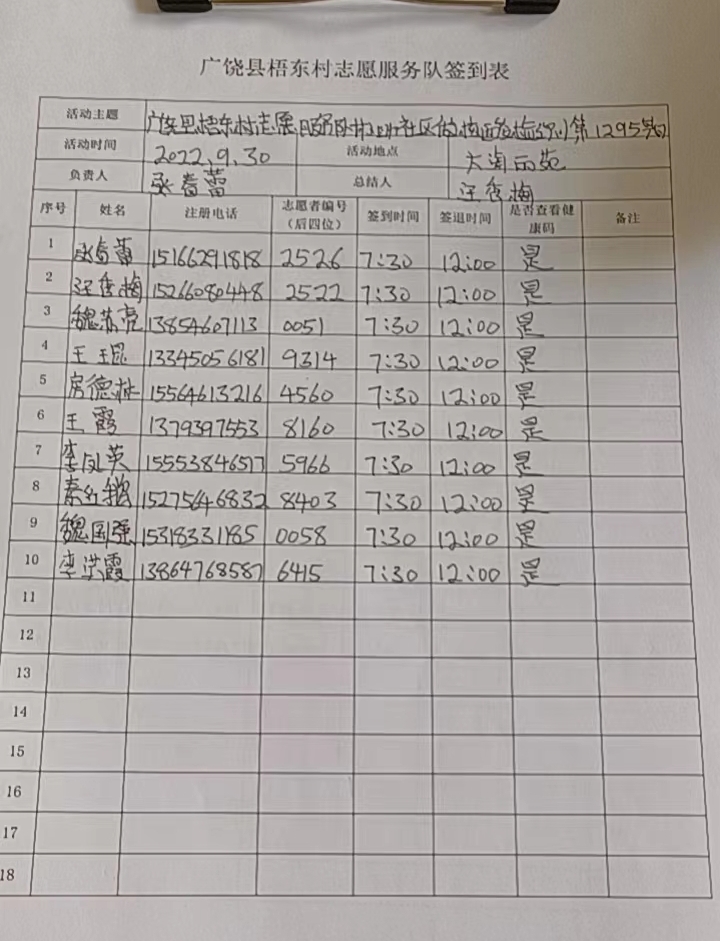 广饶县梧东村志愿服务队签到表
活动主题 广饶县梧东村志愿服务队 社区做核酸检 第1295
活动时间 2022.9.30 活动地点
负责人 张春蕾 总结人 汪秀梅
序号 姓名 注册电话 志愿者编号（后四位） 签到时间 签退时间 是否查看健康码 备注
1 张春蕾 15166291818 2526 7:30 12:00 是
2 汪秀梅 15266080448 2522 7:30 12:00 是
3 魏苏亮 13854607113 0051 7:30 12:00 是
4 王玉昆 13345056181 9314 7:30 12:00 是
5 房德林 15564613216 4560 7:30 12:00 是
6 王霞 1379397553 8160 7:30 12:00 是
7 李凤英 15553846577 5966 7:30 12:00 是
8 秦红鹅 15275646832 8403 7:30 12:00 是
9 魏国强 15318331185 0058 7:30 12:00 是
10 李洪霞 13864768587 6415 7:30 12:00 是
11
12
13
14
15
16
17
18